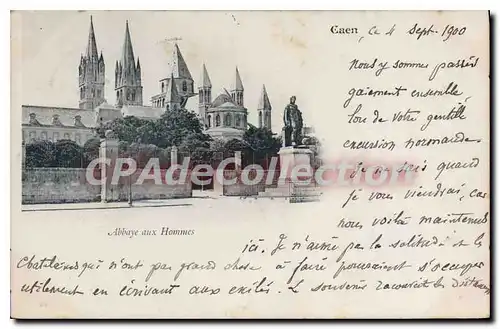 Caen, Ce 4 Sept. 1900
Nous y sommes passés
gaiement ensemble,
lors de votre gentille
excursion normande
Je ne sais quand
je vous reverrai, car
nous voilà maintenant
CPArama.com
Abbaye aux Hommes
ici. Je n'aime pas la solitude et les
Châtelains qui n'ont pas grand chose à faire pourraient s'occuper
utilement en écrivant aux exilés. Le souvenir raccourcit les distances